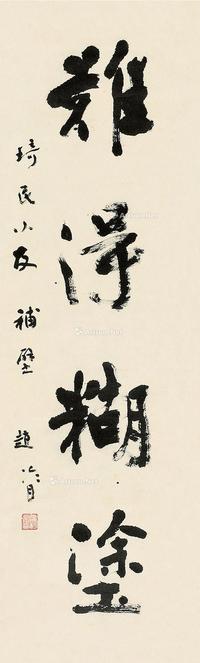 難得糊塗
琦民小友補壁 趙冷月